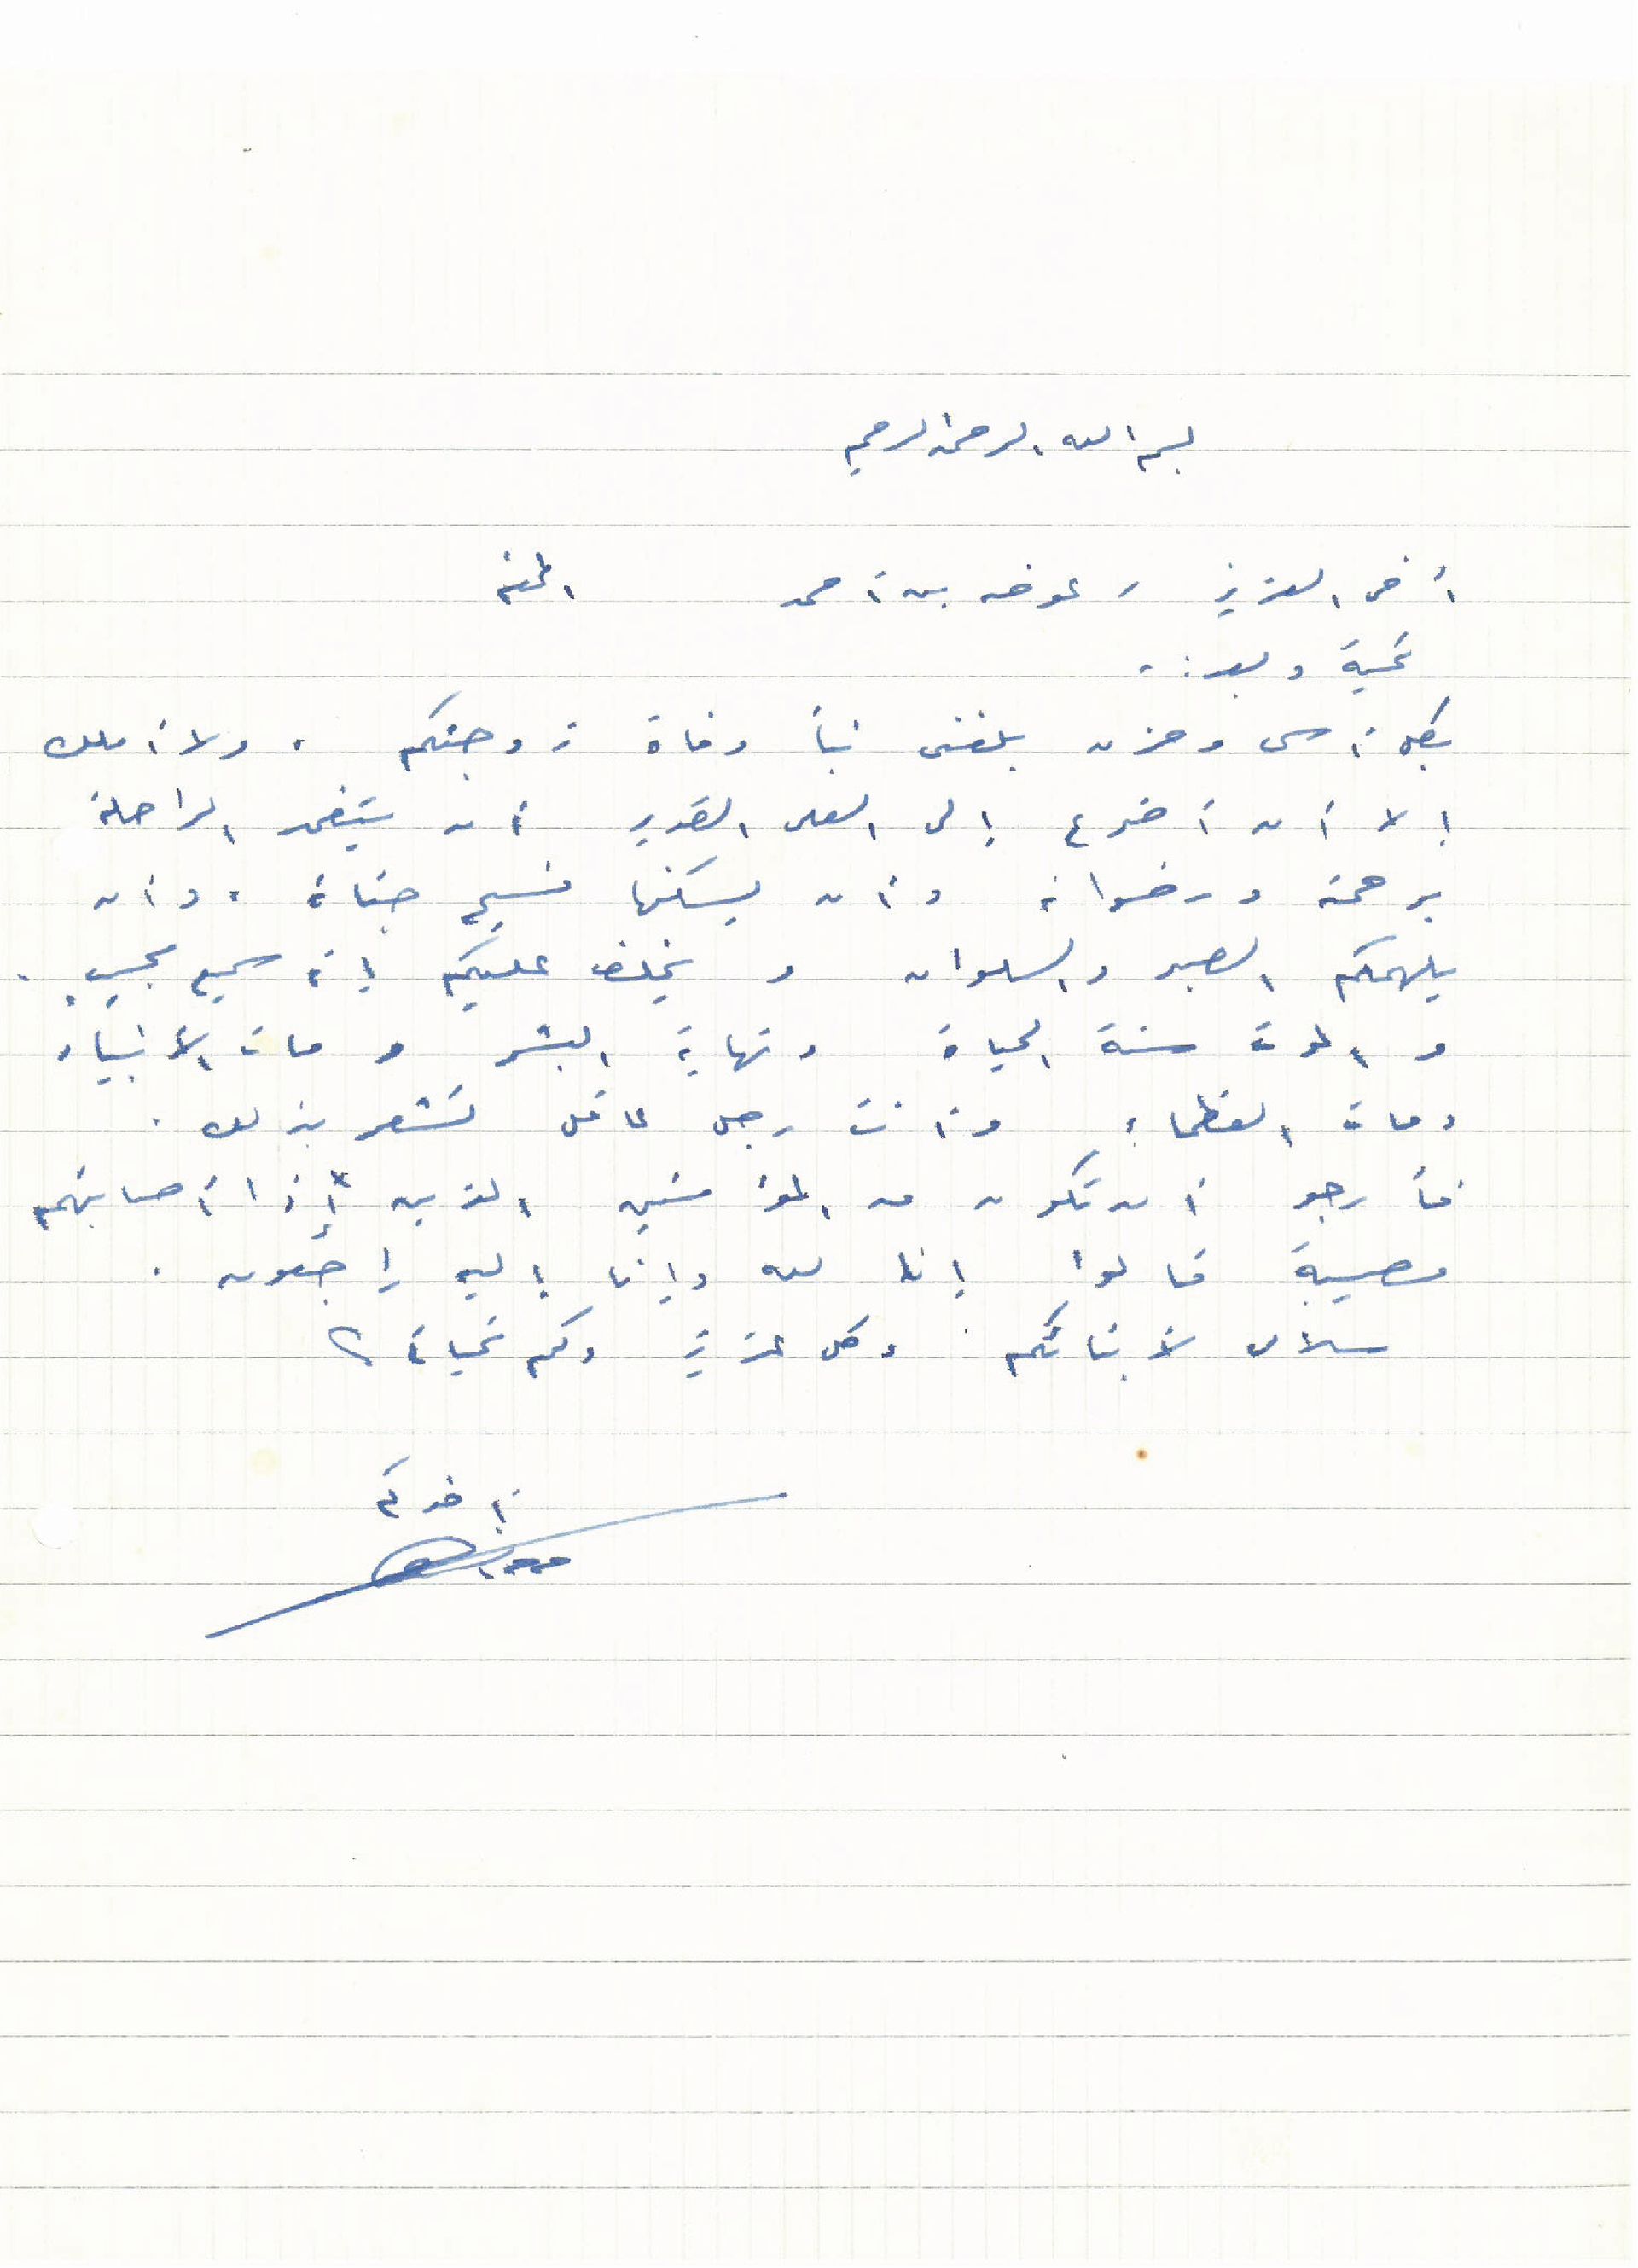 بسم الله الرحمن الرحيم
أخي العزيز / عوضه بن أحمد المحترم
تحية وبعد :-
بكل أسى وحزن بلغني نبأ وفاة زوجتكم ، ولا أملك
إلا أن أضرع إلى العلي القدير أن يتغمد الراحلة
برحمته ورضوانه وأن يسكنها فسيح جناته ، وأن
يلهمكم الصبر والسلوان و يخلف عليكم إنه سميع مجيب .
والموت سنة الحياة ونهاية البشر و مات الأنبياء
ومات العظماء وأنت رجل عاقل تشعر بذلك .
فأرجو أن تكون من المؤمنين الذين إذا أصابتهم
مصيبة قالوا إنا لله وإنا إليه راجعون .
سلامي لأبنائكم وكل عزيز ولكم تحياتي
أخوكم